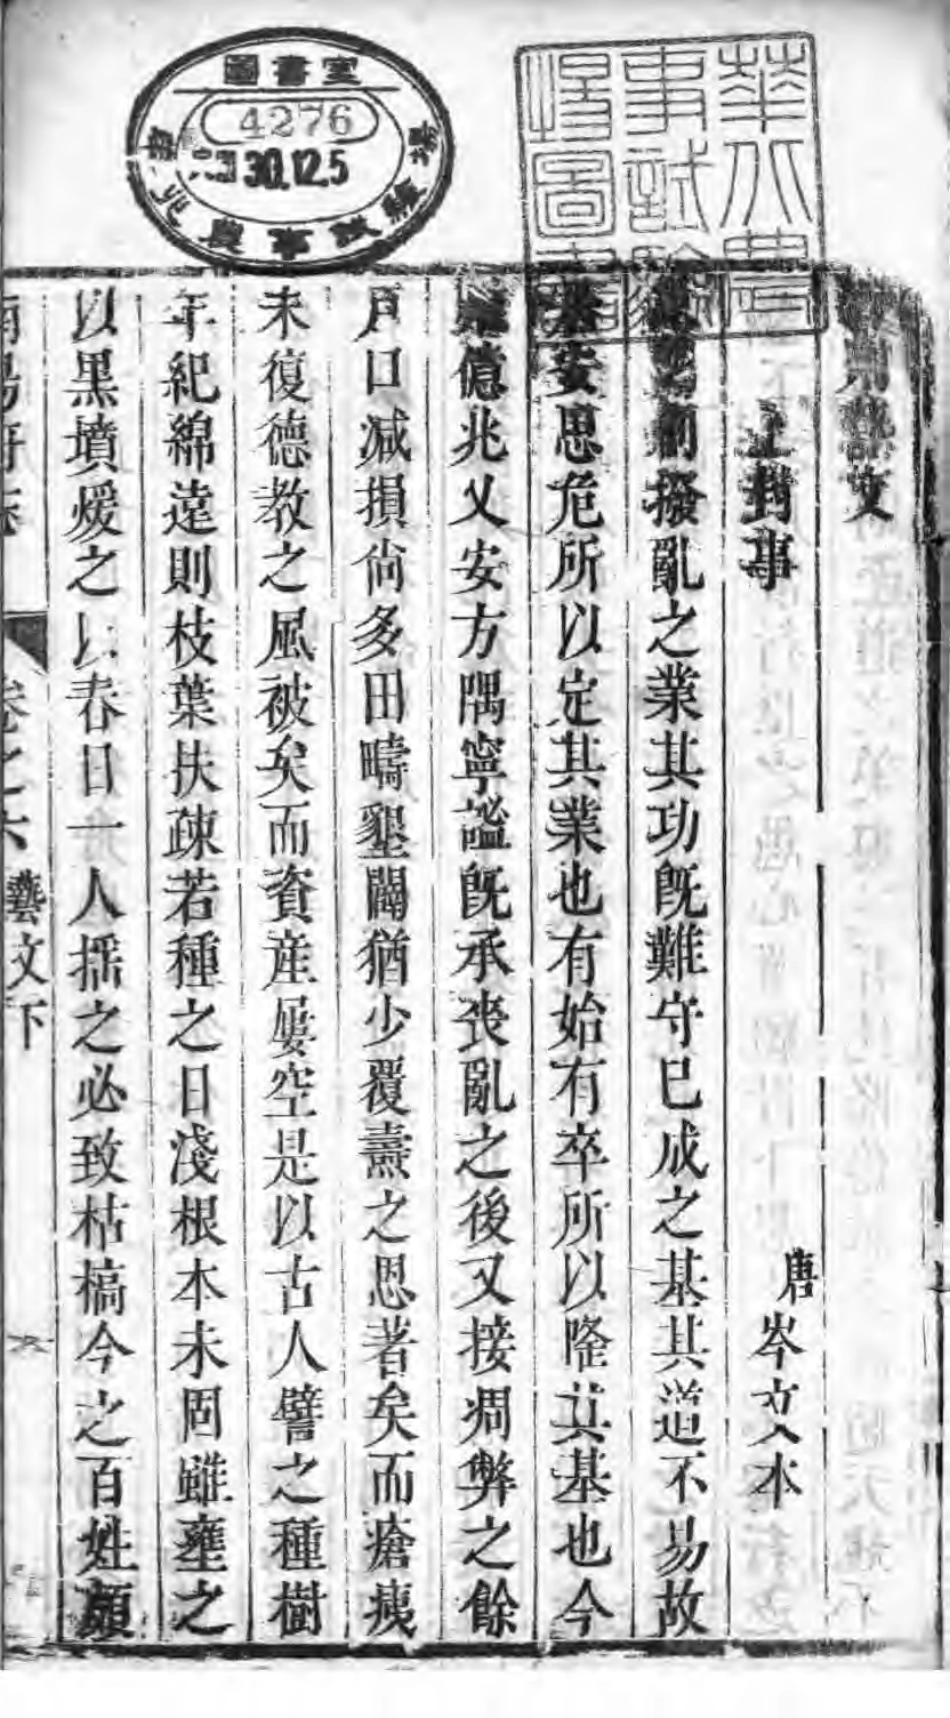 圖書室
4276
30.12.5
華北農
事試驗
場圖書
藝文
上封事
唐 岑文本
創撥亂之業其功既難守已成之基其道不易故
居安思危所以定其業也有始有卒所以隆其基也今
雖億兆乂安方隅寧謐旣承喪亂之後又接凋弊之餘
戶口減損尙多田疇墾闢猶少覆燾之恩著矣而瘡痍
未復德教之風被矣而資產屢空是以古人譬之種樹
年紀綿遠則枝葉扶疎若種之日淺根本未固雖壅之
以黑墳煖之以春日一人搖之必致枯槁今之百姓頗
南陽府志 卷之六 藝文下